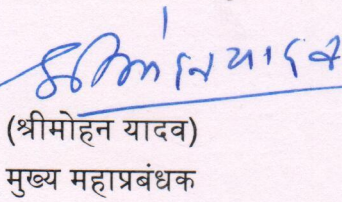 श्रीमोहन यादव
(श्रीमोहन यादव)
मुख्य महाप्रबंधक